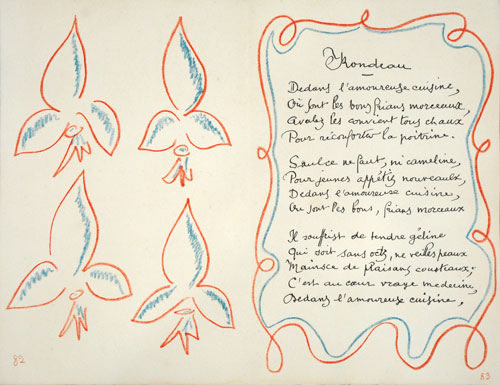 Rondeau
Dedans l'amoureuse cuisine,
Où sont les bons frians morceaux,
Avalez les convient tous chaux
Pour réconforter la poitrine.
Saulce ne faut, ni cameline,
Pour jeunes appétiz nouveaulx,
Dedans l'amoureuse cuisine,
Où sont les bons, frians morceaux
Il souffist de tendre géline
Qui soit sans octz, ne veilles peaux
Mainsce de plaisans cousteaux;
C'est au cœur vraye medecine,
Dedans l'amoureuse cuisine,
82
83